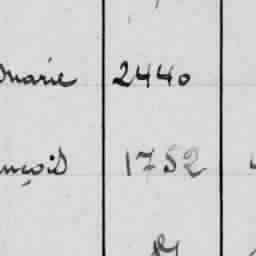 marie 2440
nçois 1752